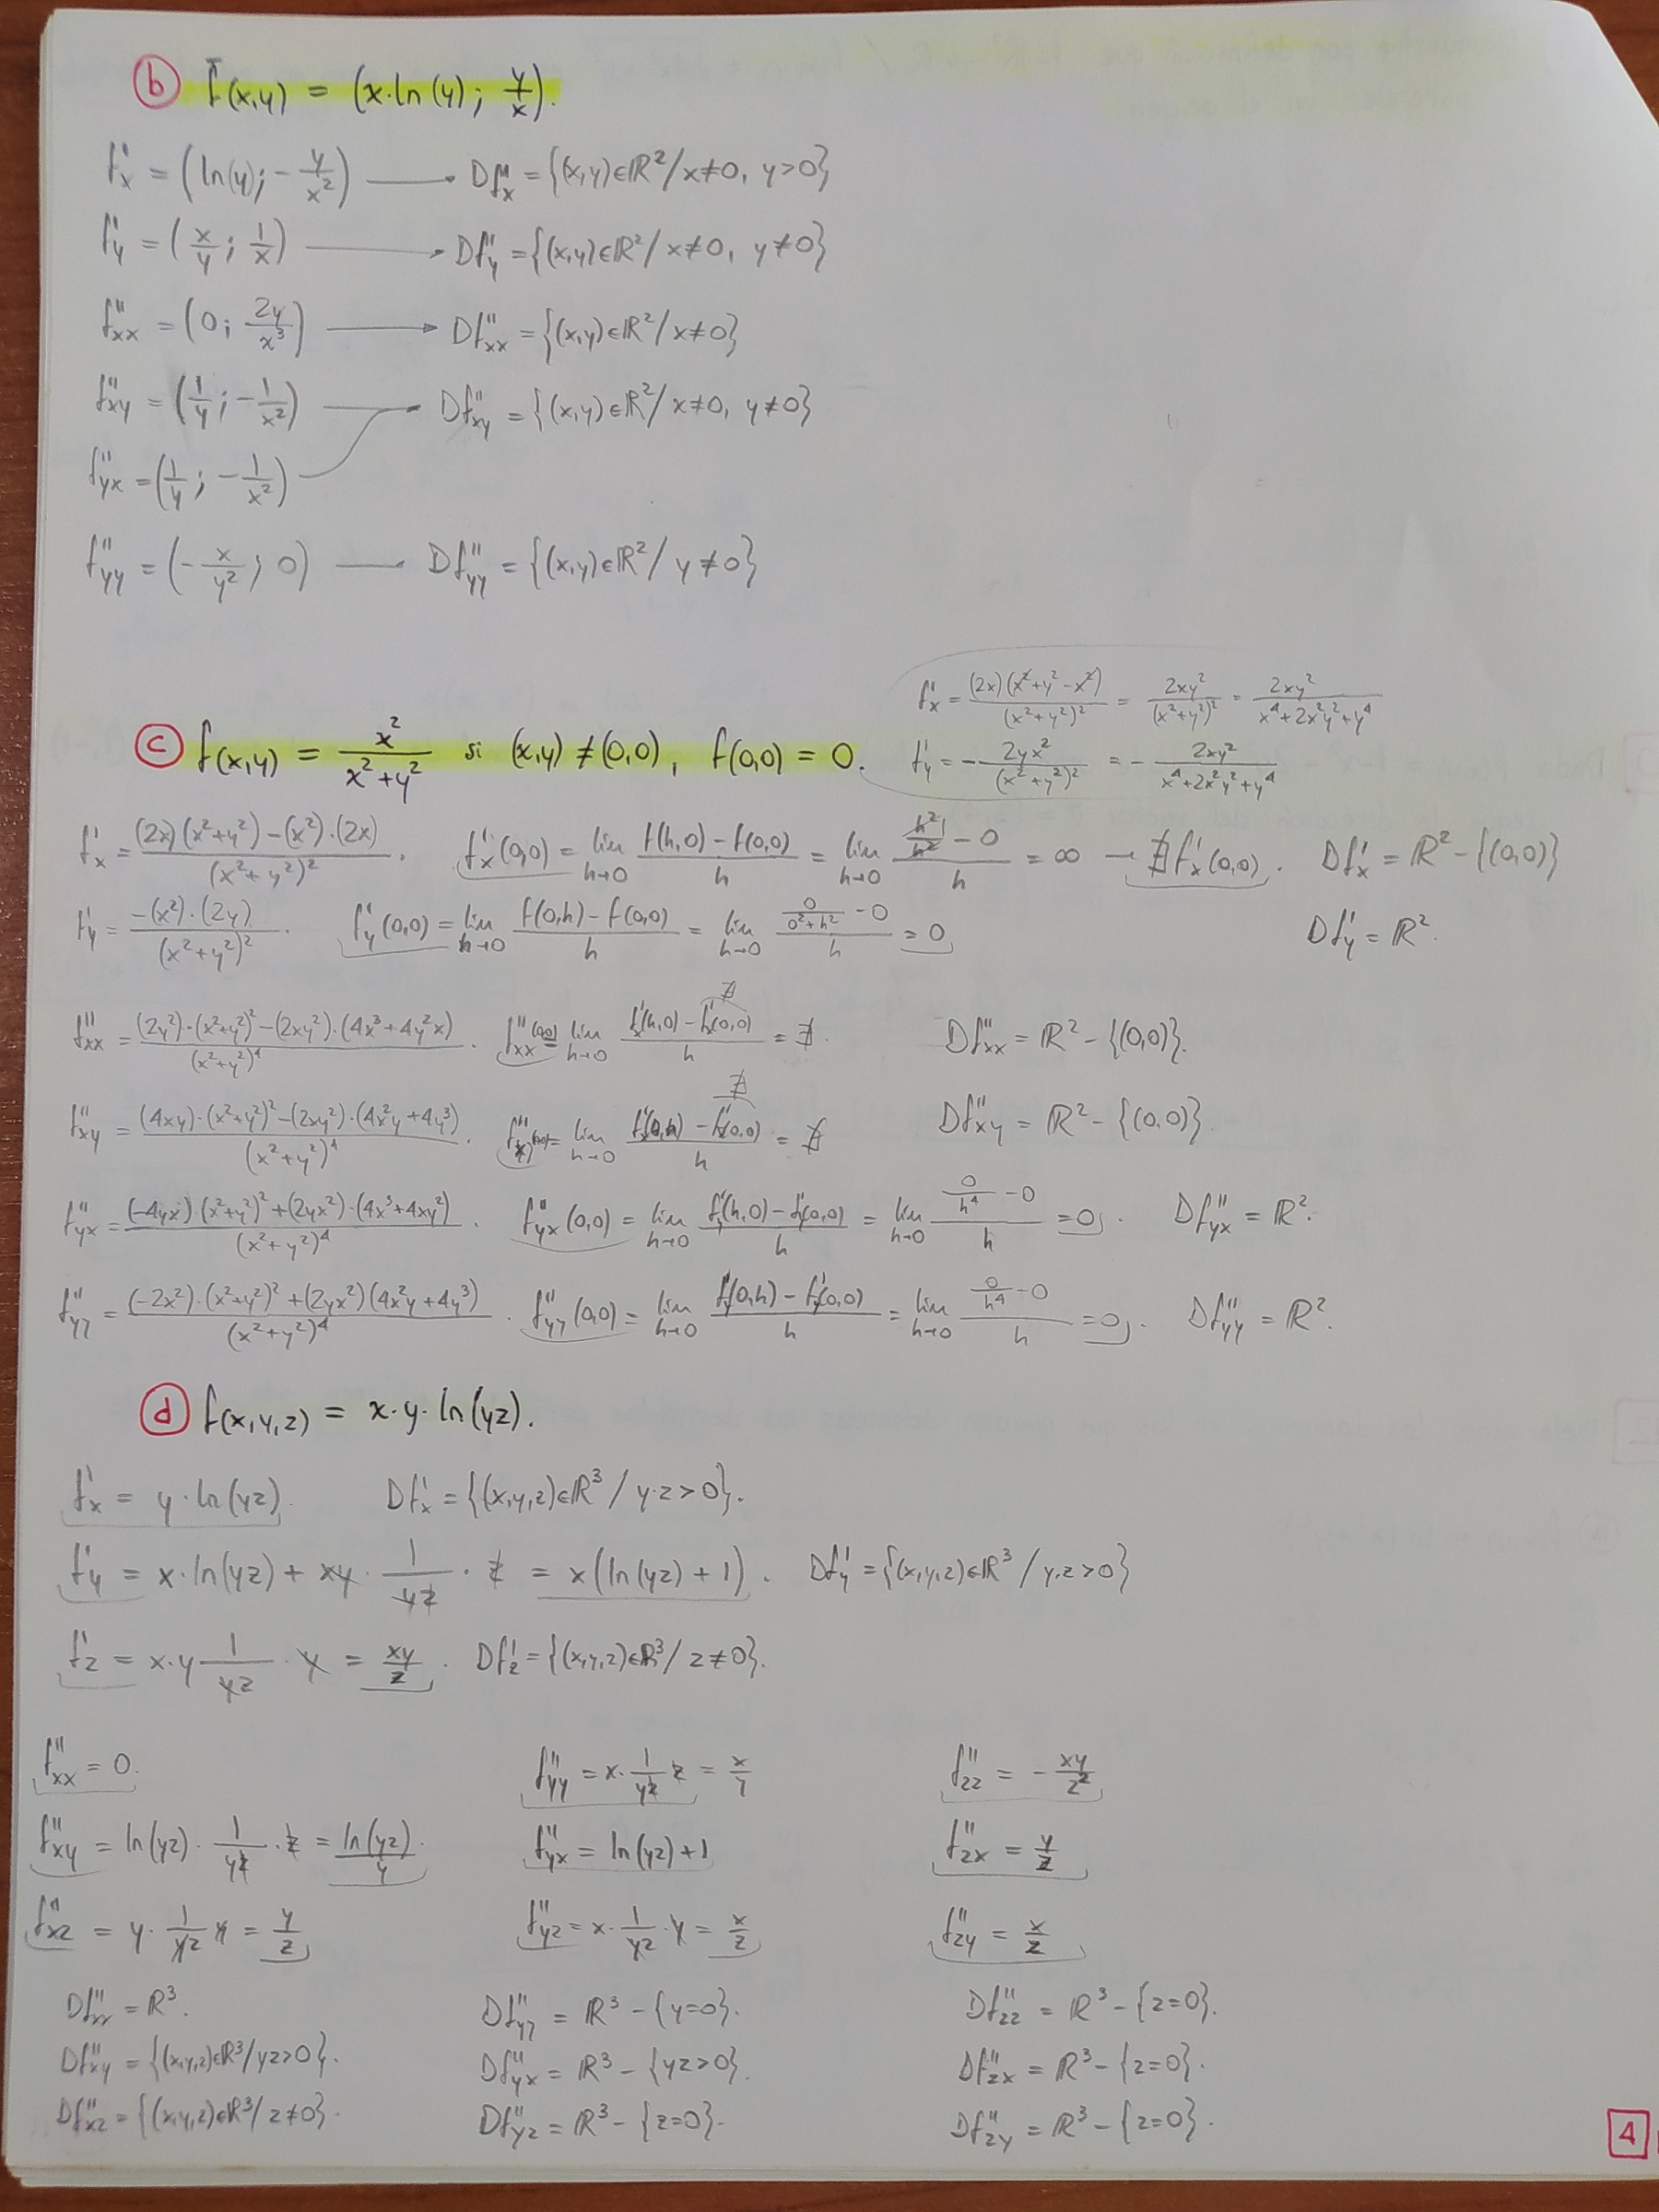 b) f̄(x,y) = (x·ln(y); y/x).
f'x = (ln(y); -y/x²) → Df'x = {(x,y)∈ℝ²/x≠0, y>0}
f'y = (x/y; 1/x) → Df'y = {(x,y)∈ℝ²/x≠0, y≠0}
f''xx = (0; 2y/x³) → Df''xx = {(x,y)∈ℝ²/x≠0}
f''xy = (1/y; -1/x²) → Df''xy = {(x,y)∈ℝ²/x≠0, y≠0}
f''yx = (1/y; -1/x²)
f''yy = (-x/y²; 0) — Df''yy = {(x,y)∈ℝ²/ y≠0}
f'x = (2x)(x²+y²-x²)/(x²+y²)² = 2xy²/(x²+y²)² = 2xy²/(x⁴+2x²y²+y⁴)
c) f(x,y) = x²/(x²+y²) si (x,y)≠(0,0), f(0,0) = 0.
f'y = -2yx²/(x²+y²)² = -2xy²/(x⁴+2x²y²+y⁴)
f'x = ((2x)(x²+y²)-(x²)·(2x))/(x²+y²)². f'x(0,0) = lim h→0 (f(h,0)-f(0,0))/h = lim h→0 (h²/h² - 0)/h = ∞ → ∄f'x(0,0). Df'x = ℝ²-{(0,0)}
f'y = -(x²)·(2y)/(x²+y²)². f'y(0,0) = lim h→0 (f(0,h)-f(0,0))/h = lim h→0 (0/(0²+h²) - 0)/h = 0 Df'y = ℝ².
f''xx = ((2y²)·(x²+y²)²-(2xy²)·(4x³+4y²x))/(x²+y²)⁴. f''xx(0,0) = lim h→0 (f'x(h,0)-f'x(0,0))/h = ∄. ∄ Df''xx = ℝ²-{(0,0)}.
f''xy = ((4xy)·(x²+y²)²-(2xy²)·(4x²y+4y³))/(x²+y²)⁴. f''xy(0,0) = lim h→0 (f'x(0,h)-f'x(0,0))/h = ∄ ∄ Df''xy = ℝ²-{(0,0)}.
f''yx = ((-4yx)·(x²+y²)²+(2yx²)·(4x³+4xy²))/(x²+y²)⁴. f''yx(0,0) = lim h→0 (f'y(h,0)-f'y(0,0))/h = lim h→0 (0/h⁴ - 0)/h = 0. Df''yx = ℝ².
f''yy = ((-2x²)·(x²+y²)²+(2yx²)(4x²y+4y³))/(x²+y²)⁴. f''yy(0,0) = lim h→0 (f'y(0,h)-f'y(0,0))/h = lim h→0 (0/h⁴ - 0)/h = 0. Df''yy = ℝ².
d) f(x,y,z) = x·y·ln(yz).
f'x = y·ln(yz). Df'x = {(x,y,z)∈ℝ³/y·z>0}.
f'y = x·ln(yz) + xy·1/(yz)·z = x(ln(yz)+1). Df'y = {(x,y,z)∈ℝ³/y·z>0}
f'z = x·y 1/(yz)·y = xy/z. Df'z = {(x,y,z)∈ℝ³/z≠0}.
f''xx = 0. f''yy = x·1/(yz) z = x/y f''zz = -xy/z²
f''xy = ln(yz)·1/(yz)·z = ln(yz)/y. f''yx = ln(yz)+1 f''zx = y/z
f''xz = y·1/(yz) y = y/z f''yz = x·1/(yz)·y = x/z f''zy = x/z
Df''xx = ℝ³. Df''yy = ℝ³-{y=0}. Df''zz = ℝ³-{z=0}.
Df''xy = {(x,y,z)∈ℝ³/yz>0}. Df''yx = ℝ³-{yz>0}. Df''zx = ℝ³-{z=0}.
Df''xz = {(x,y,z)∈ℝ³/z≠0}. Df''yz = ℝ³-{z=0}. Df''zy = ℝ³-{z=0}.
4